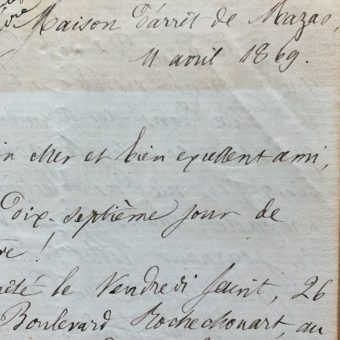 Maison d'arrêt de Mazas,
11 avril 1869.
n cher et bien excellent ami,
Dix-septième jour de
re !
êté le Vendredi Saint, 26
Boulevard Rochechouart, au